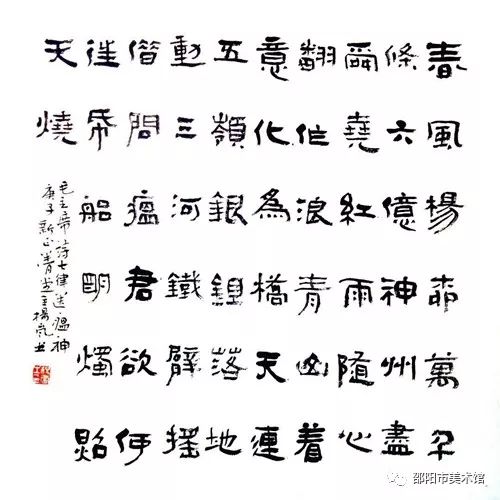 春風楊柳萬千
條六億神州盡
舜堯紅雨隨心
翻作浪青山着
意化為橋天連
五嶺銀鋤落地
動三河鐵臂搖
借問瘟君欲何
往帋船明燭照
天燒
毛主席詩七律送瘟神
庚子新正
邵阳市美术馆